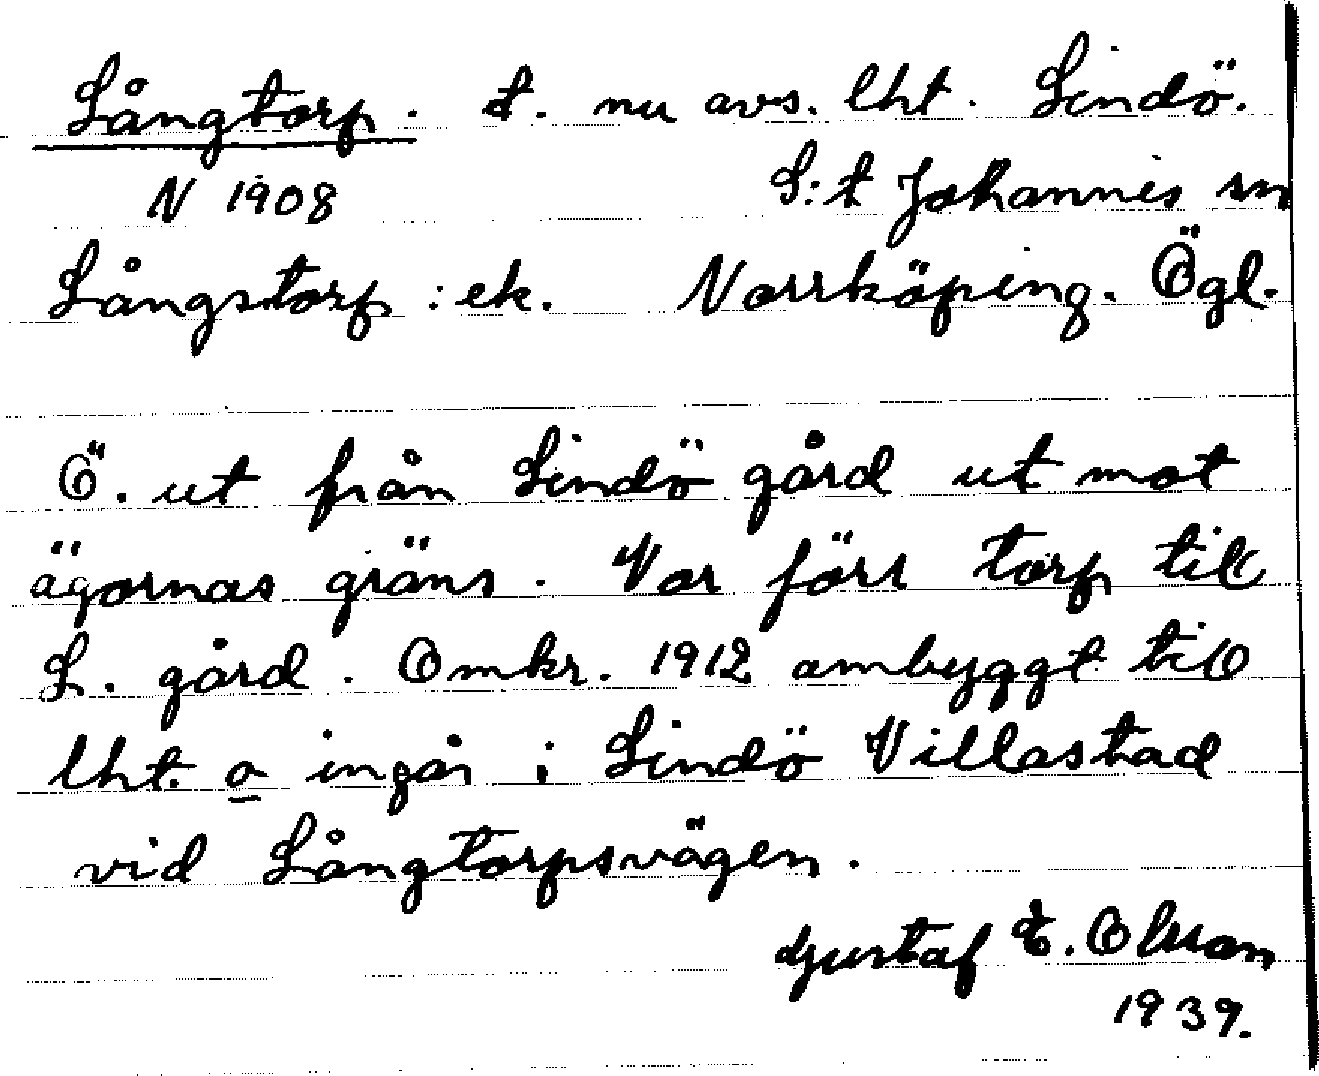 Långtorp. t. nu avs. lht. Lindö.
N 1908 S:t Johannes sn
Långstorp : ek. Norrköping. Ögl.
Ö. ut från Lindö gård ut mot
ägornas gräns. Var förr torp till
L. gård. Omkr. 1912 ombyggt till
lht. o ingår i Lindö Villastad
vid Långtorpsvägen.
Gustaf E. Olsson
1939.